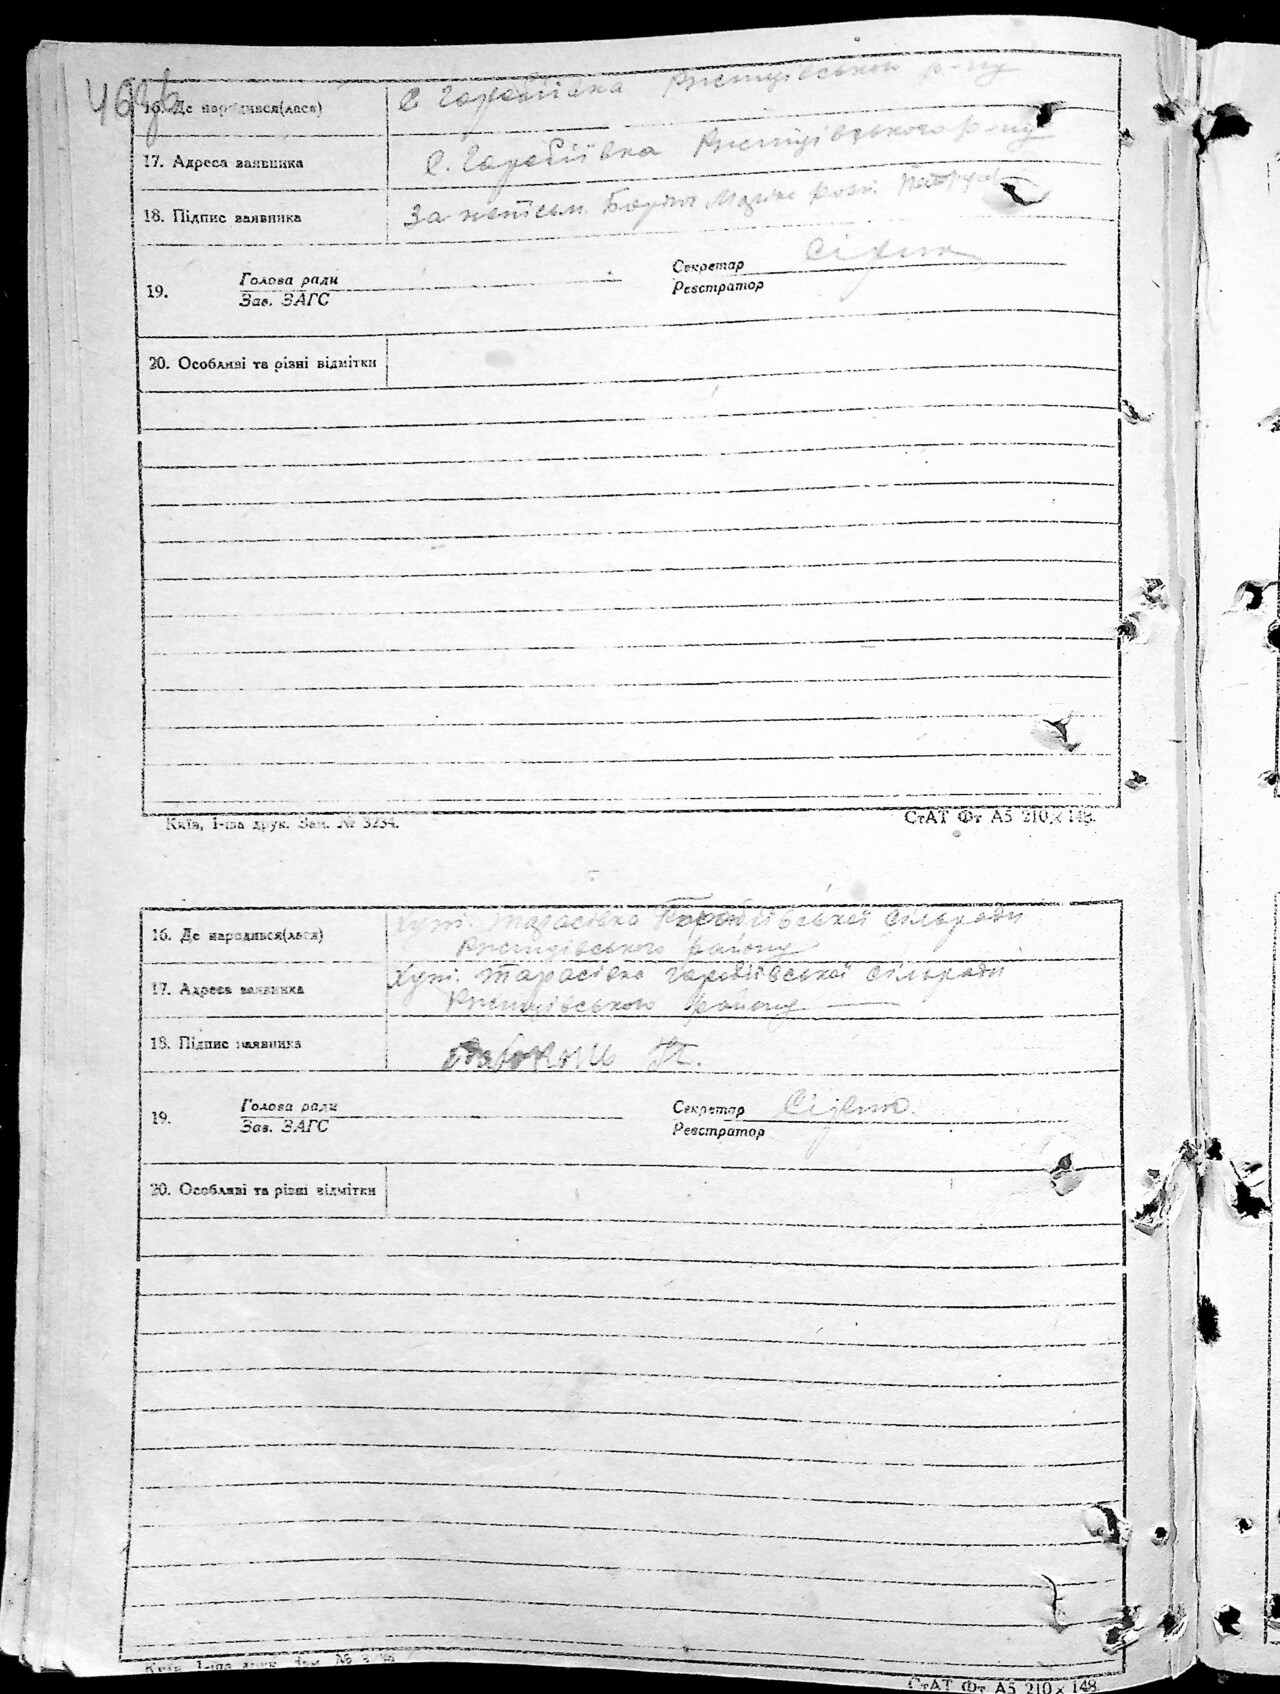 16. Де народився(лася) с. Гарбіївка Ржищівського р-ну
17. Адреса заявника с. Гарбіївка Ржищівського р-ну
18. Підпис заявника За неписьм.
Голова ради Секретар
19. Зав. ЗАГС Реєстратор
20. Особливі та різні відмітки
Київ, 1-ша друк. Зам. № 3234. СтАТ Фт А5 210 х 148.
16. Де народився(лася) Хут. Тарасівка сільради
Ржищівського району
17. Адреса заявника Хут. Тарасівка гарбіївської сільради
Ржищівського району
18. Підпис заявника
Голова ради Секретар
19. Зав. ЗАГС Реєстратор
20. Особливі та різні відмітки
Київ, 1-ша друк. Зам. №
СтАТ Фт А5 210 х 148